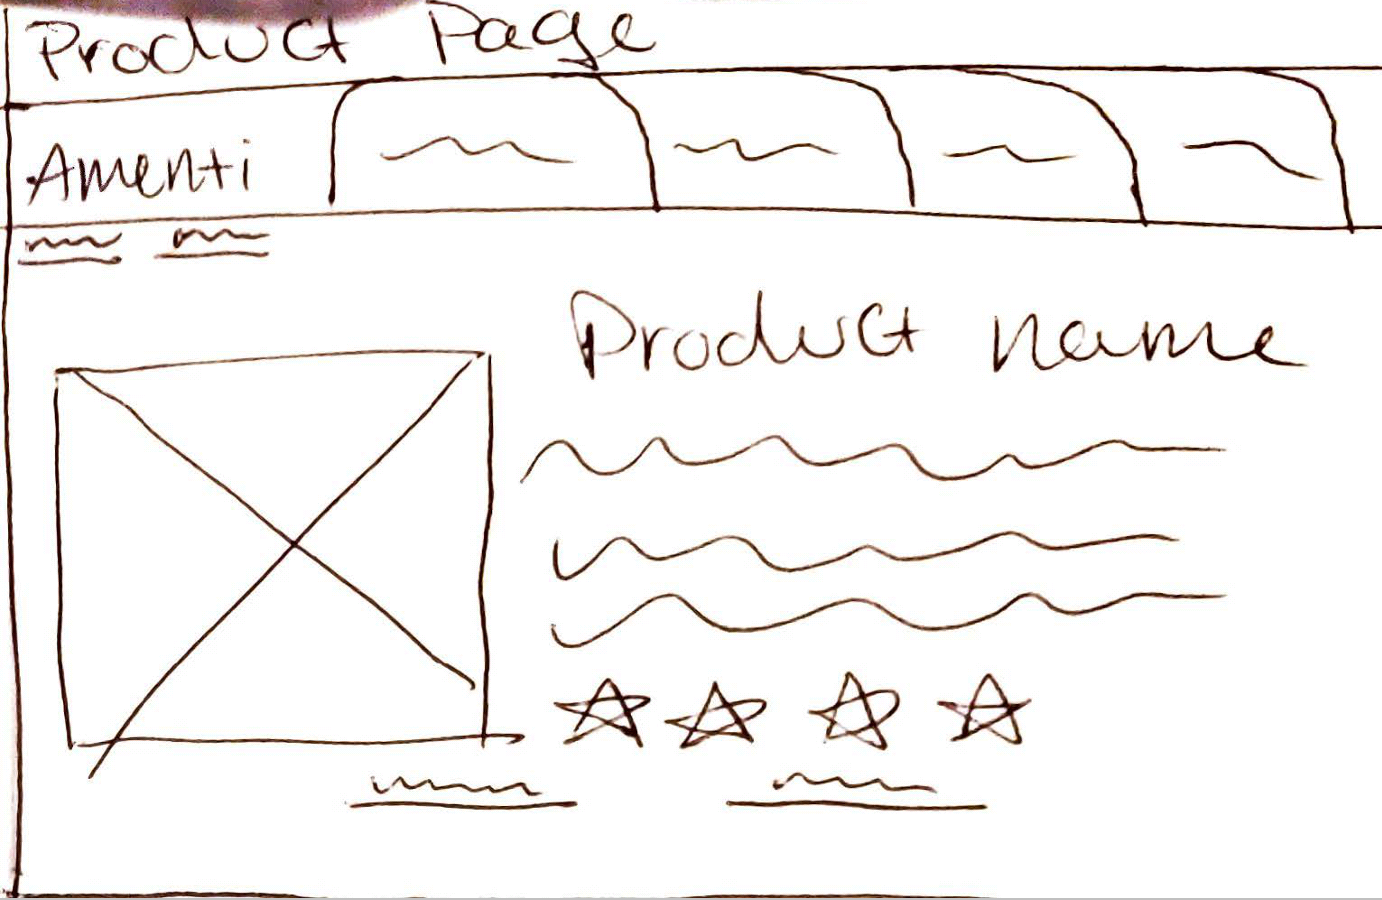 Product Page
Amenti
Product name